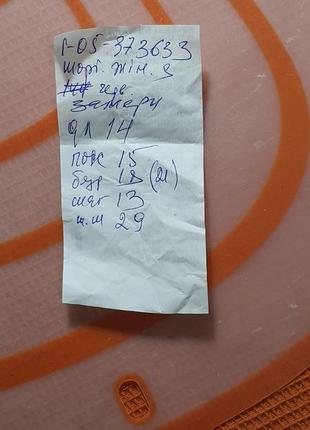 1-05-373633
шорт. жін. з
черв.
Заміри
дл 14
пояс 15
бедр 18 (21)
шаг 13
ш.ш 29